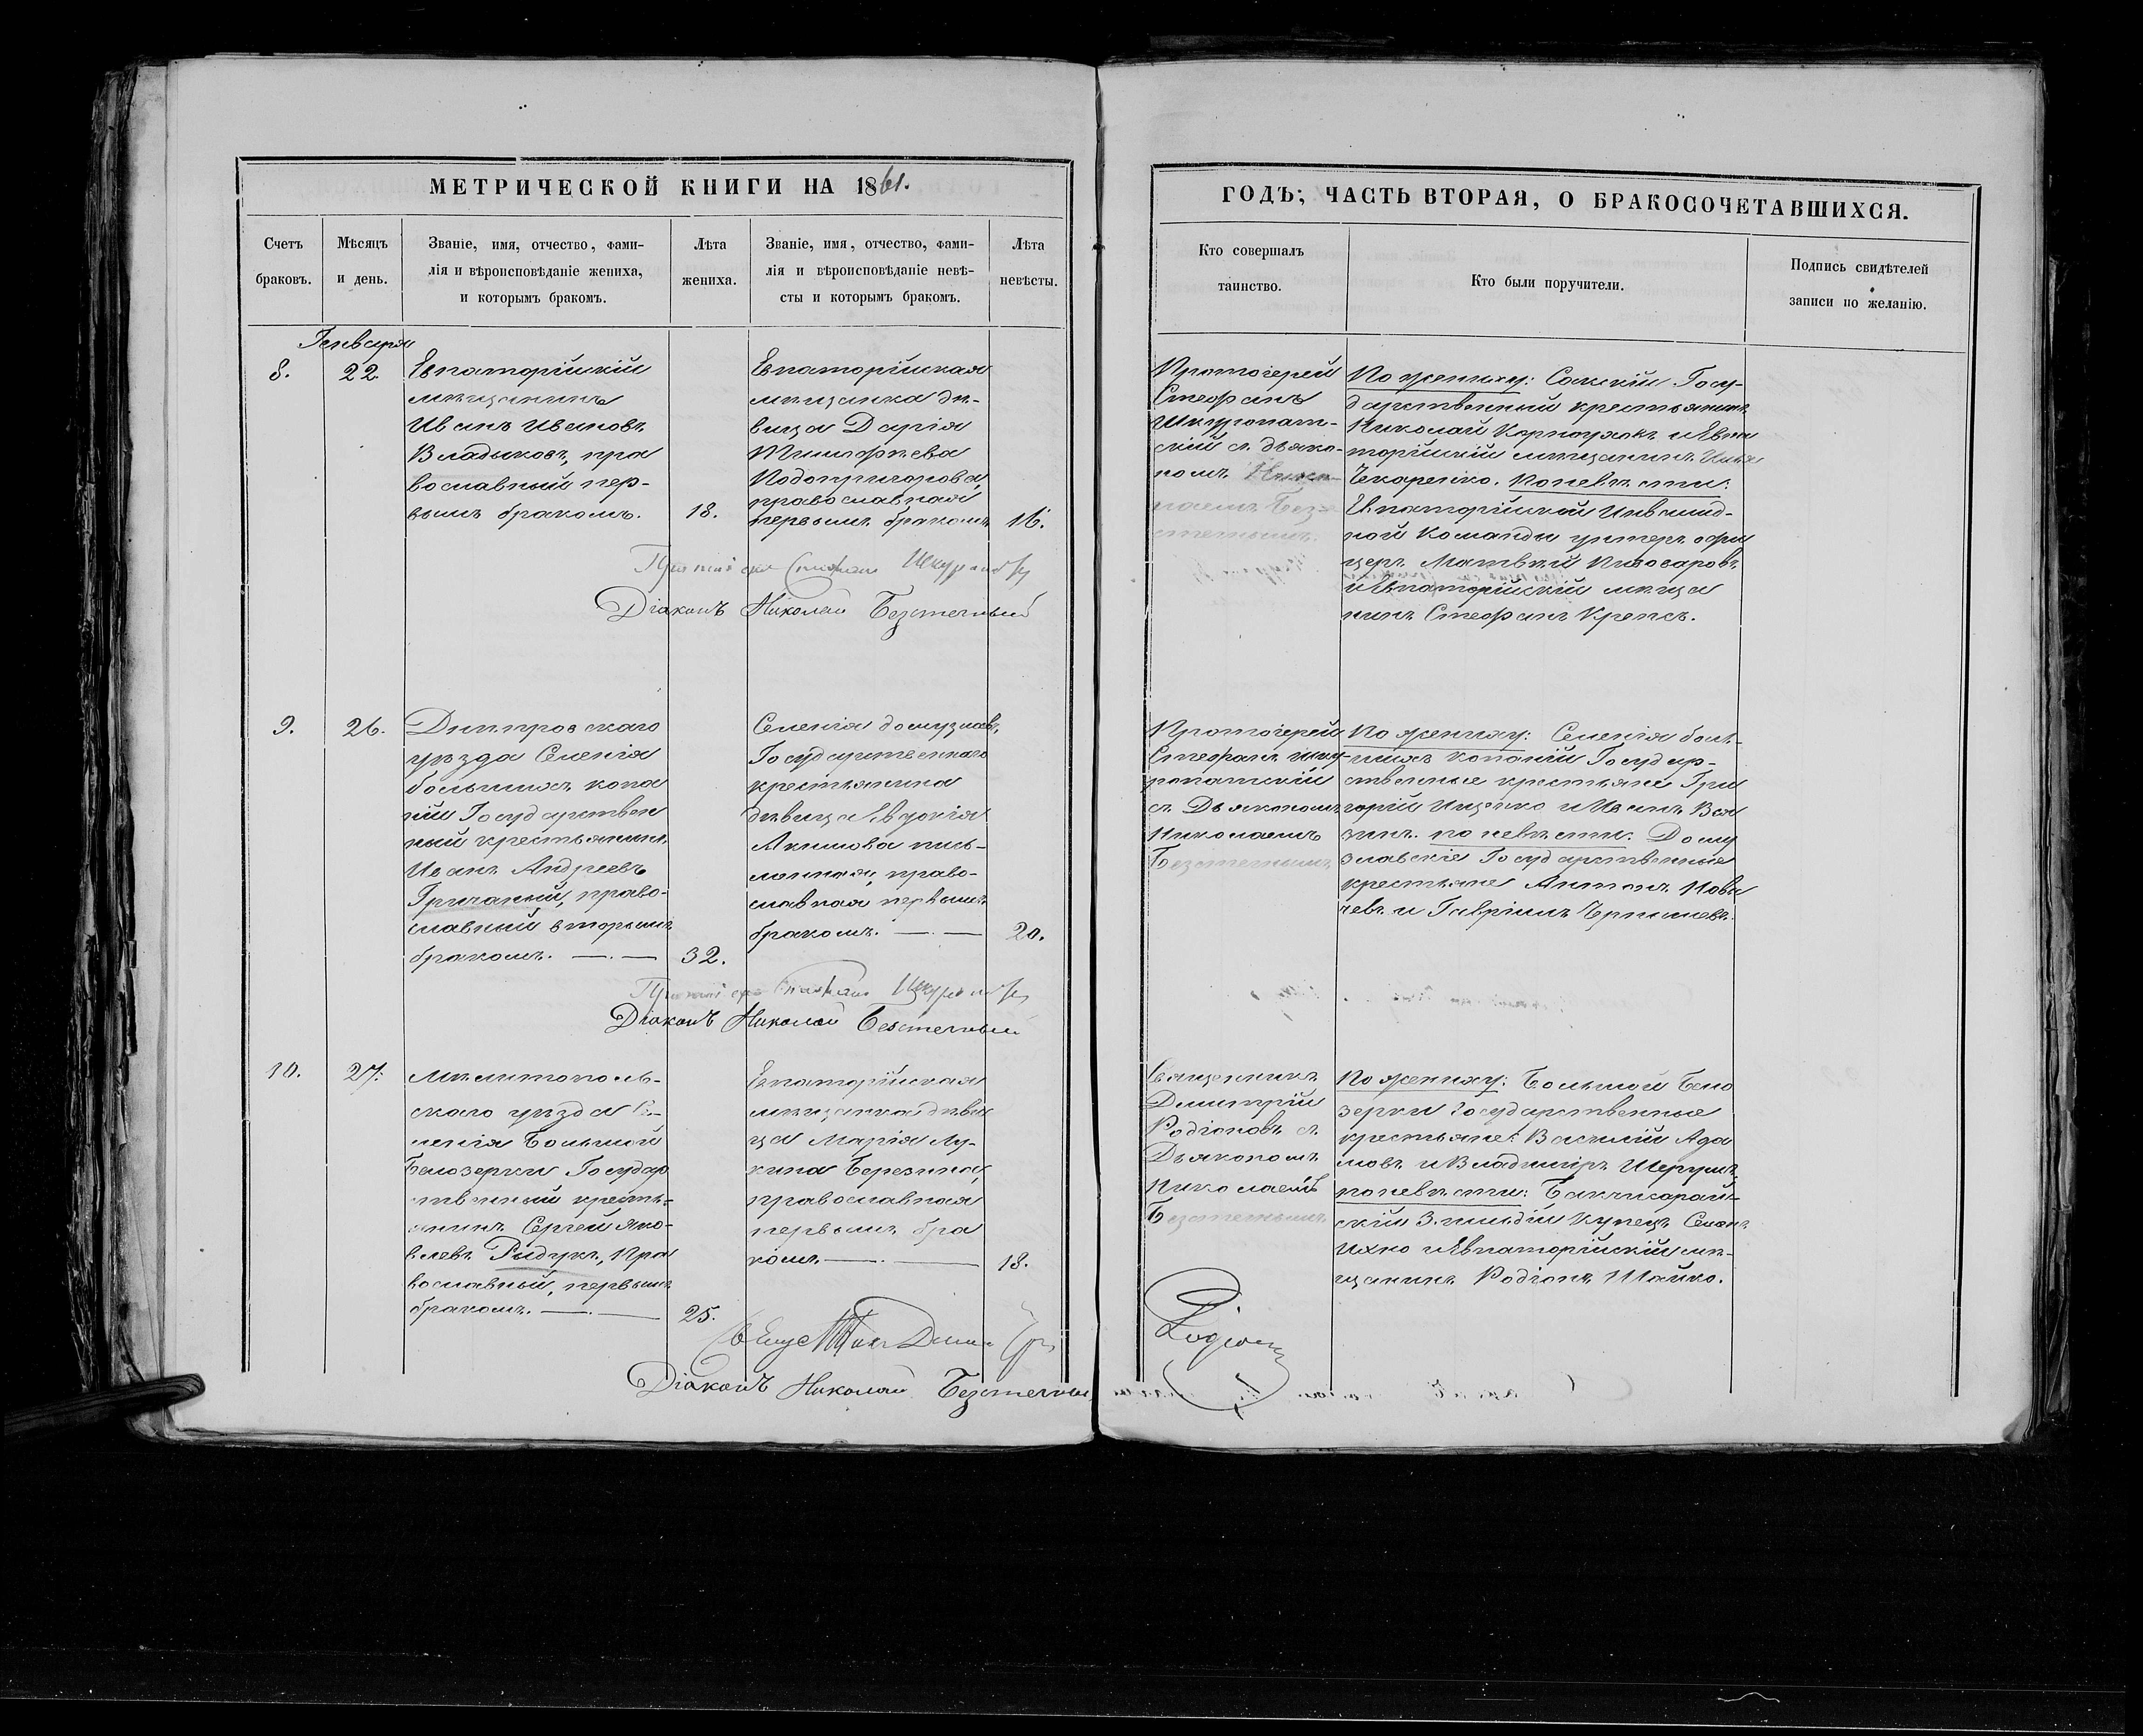 МЕТРИЧЕСКОЙ КНИГИ НА 1861.
Счетъ браковъ.
Мѣсяцъ и день.
Званіе, имя, отчество, фами-
лія и вѣроисповѣданіе жениха,
и которымъ бракомъ.
Лѣта
жениха.
Званіе, имя, отчество, фами-
лія и вѣроисповѣданіе невѣ-
сты и которымъ бракомъ.
Лѣта
невѣсты.
Генваря
8.
22.
Евпаторійскій
мѣщанинъ
Иванъ Ивановъ
Владыковъ, пра
вославный пер-
вымъ бракомъ.
18.
Евпаторійская
мѣщанка дѣ-
вица Дарія
Тимофѣева
Подопригорова,
православная
первымъ бракомъ
16.
Діаконъ Николай Безстечный
9.
26.
Днѣпровскаго
уѣзда Селенія
большихъ копа
ній Государствен
ный крестьянинъ
Иванъ Андреевъ
Гричаный, право-
славный вторымъ
бракомъ.
32.
Селенія домузлавъ,
Государственнаго
крестьянина
дѣвица Евдокія
Акимова пись-
менная, право-
славная первымъ
бракомъ.
20.
Діаконъ Николай Безстечный
10.
27.
Мелитополь-
скаго уѣзда Се-
ленія Большой
Белозерки Государ
ственный кресть-
янинъ Сергей Яко-
влевъ Рыдукъ, Пра
вославный, первымъ
бракомъ.
25.
Евпаторійская
мѣщанка дѣви
ца Марія Лу-
кина Березина,
православная
первымъ бра
комъ.
18.
Діаконъ Николай Безстечный
ГОДЪ; ЧАСТЬ ВТОРАЯ, О БРАКОСОЧЕТАВШИХСЯ.
Кто совершалъ
таинство.
Кто были поручители.
Подпись свидѣтелей
записи по желанію.
Протоіерей
Стефанъ
Шкуропат-
скій съ дьяко-
номъ Никол-
аемъ Без-
стечнымъ
По жениху: Сакскій Госу-
дарственный крестьянинъ
Николай Карпоухов и Евпа
торійскій мѣщанинъ Илья
Чекаренко. По невѣсти:
Евпаторійской Инвалид-
ной Команды унтеръ офи
церъ Матвѣй Пивоваровъ
и Евпаторійскій мѣща
нинъ Стефанъ Крепсъ.
Протоіерей
Стефанъ шку-
ропатскій
съ Дьякономъ
Николаемъ
Безстечнымъ
По жениху: Селенія боль-
шихъ копаній Государ-
ственные крестьяне Гри
горій Ищенко и Иванъ Вая
зинъ. по невѣсти: Дому
злавскіе Государственные
крестьяне Антонъ Новы
чевъ и Гавріилъ Чернышевъ.
Священникъ
Димитрій
Родіоновъ съ
Дьякономъ
Николаемъ
Безстечнымъ
По жениху: Большой Бело
зерки государственные
крестьяне: Василій Ада
мовъ и Владиміръ Шерумъ,
по невѣсти: Бакчисарай-
скій 3. гильдіи Купецъ Семенъ
Ихно и Евпаторійскій мѣ-
щанинъ Родіонъ Шайко.